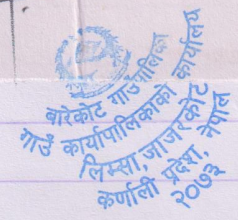 बारेकोट गाउँपालिका
गाउँ कार्यपालिकाको कार्यालय
लिम्सा, जाजरकोट
कर्णाली प्रदेश, नेपाल
२०७३